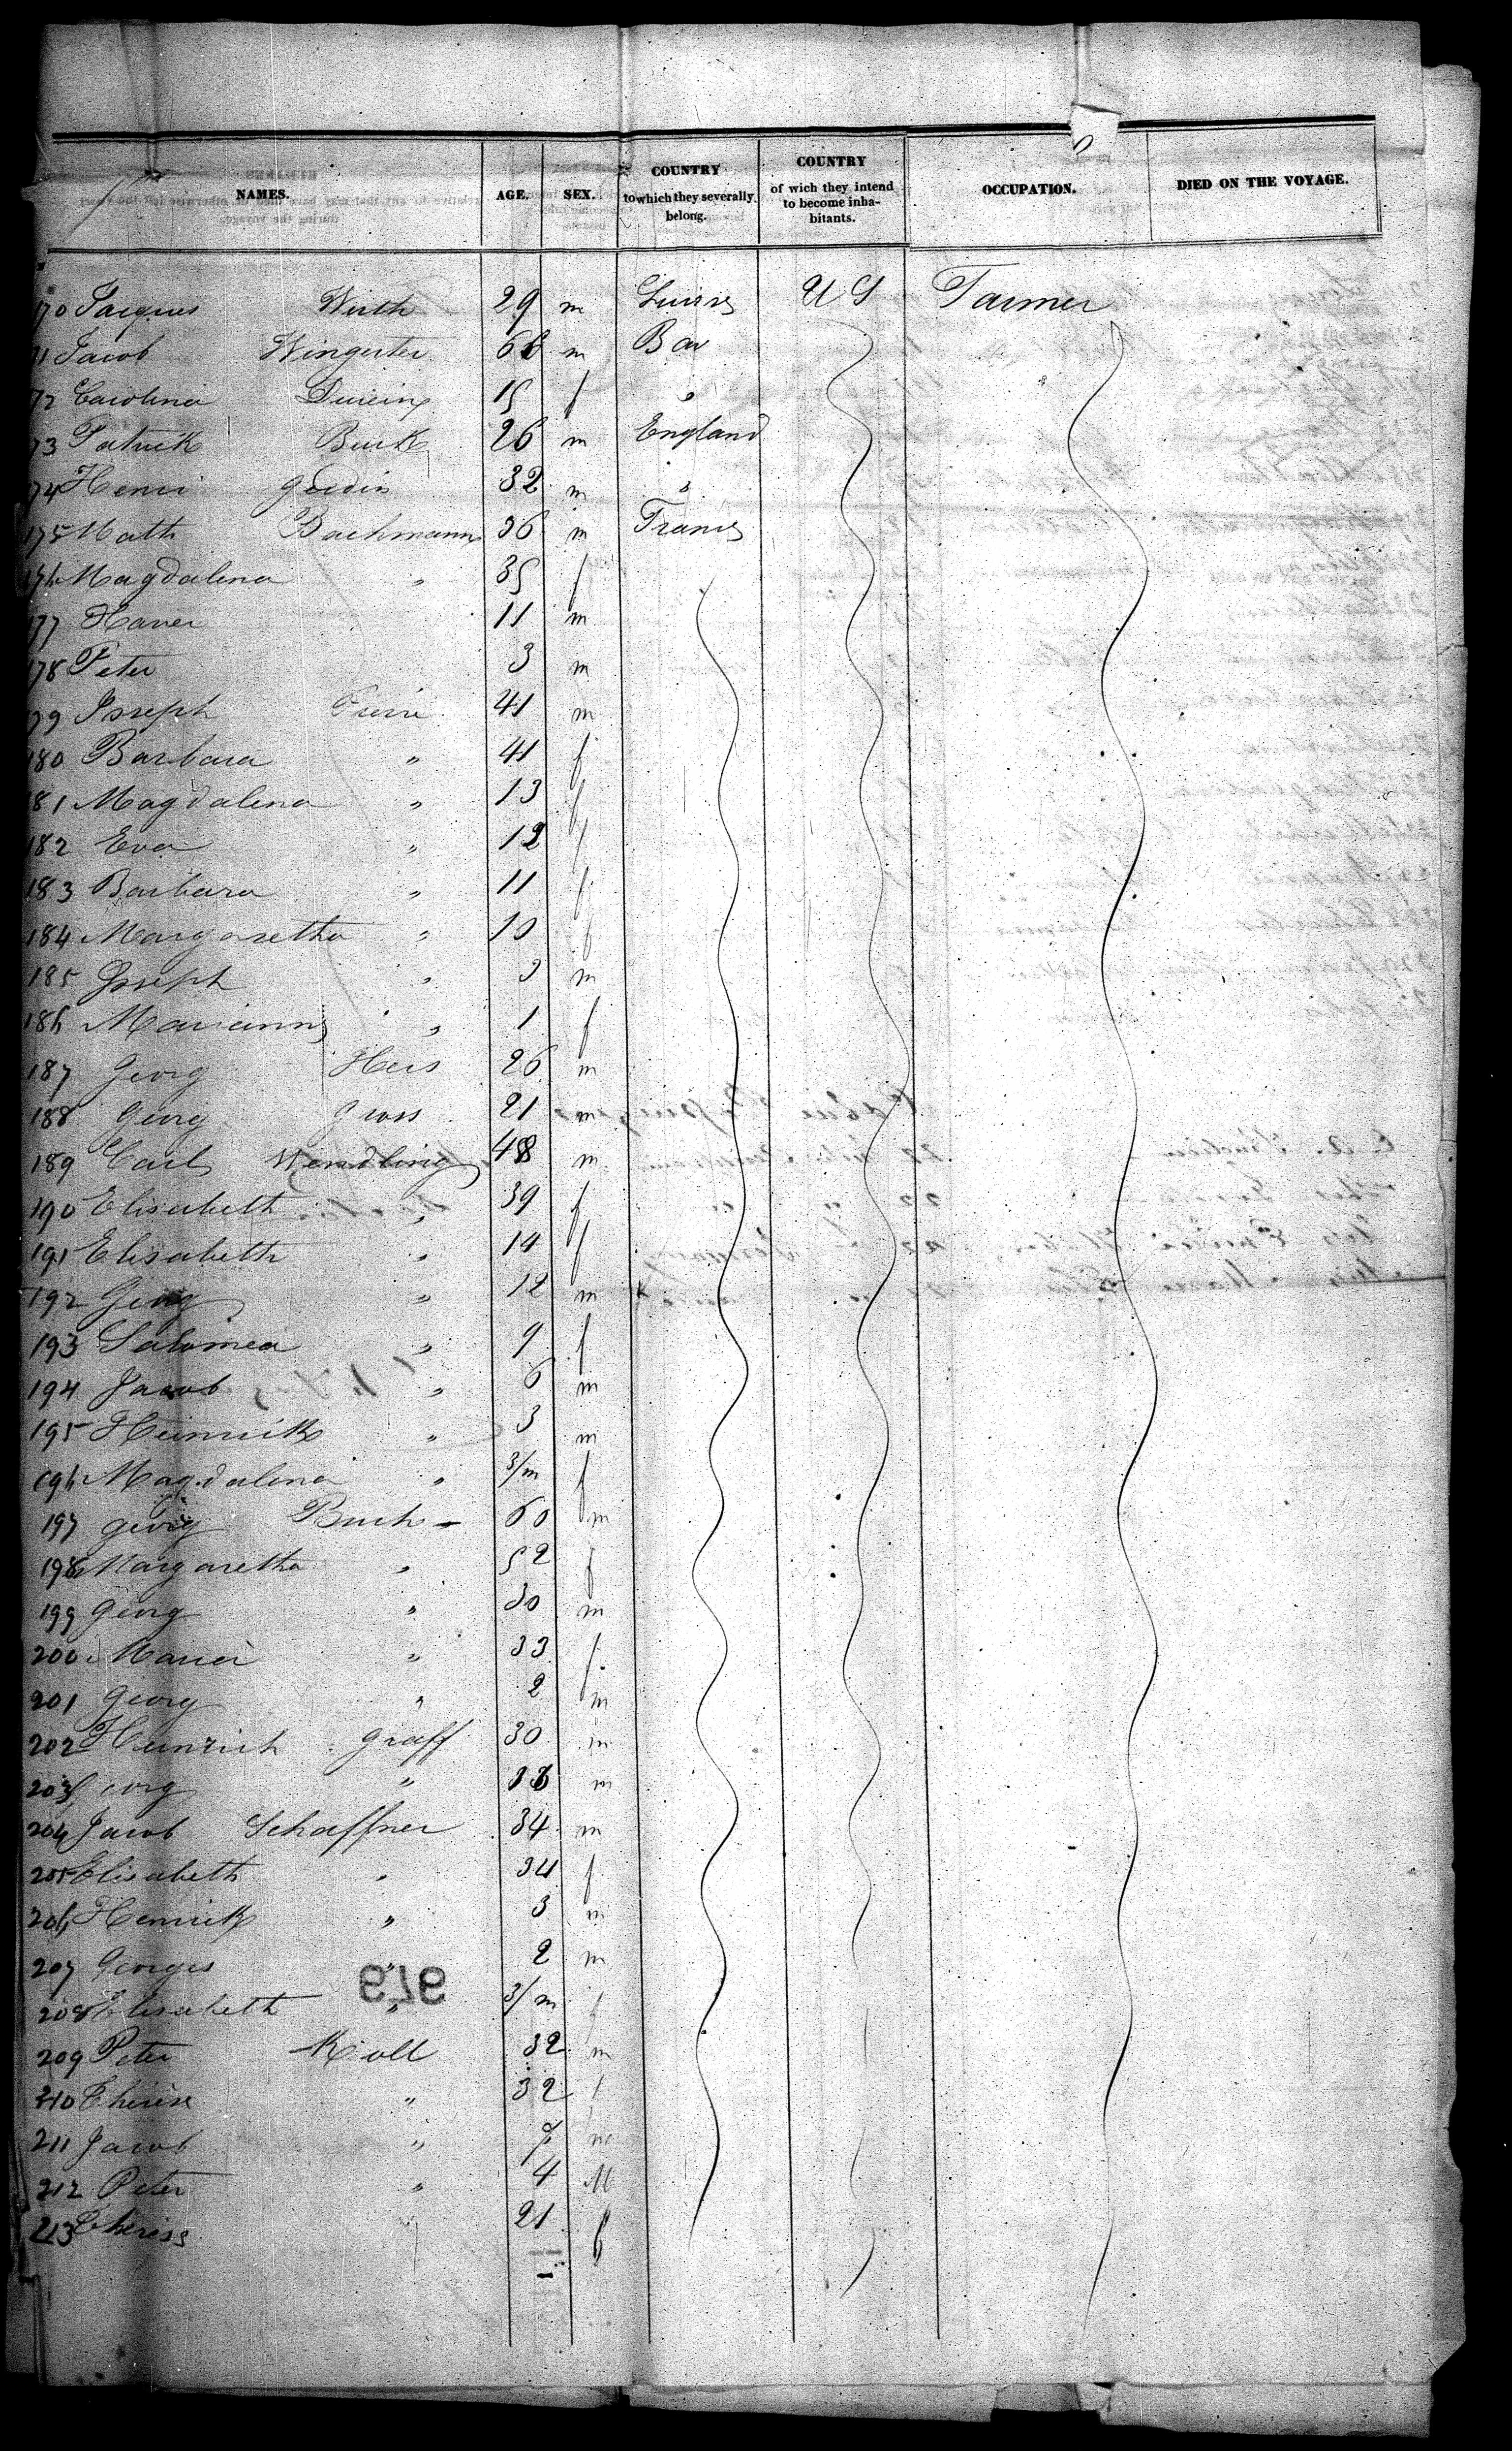 NAMES. AGE. SEX. COUNTRY to which they severally belong. COUNTRY of wich they intend to become inhabitants. OCCUPATION. DIED ON THE VOYAGE.
170 Jacques Wirth 29 m Suisse U S Farmer
71 Jacob Wingerter m Bav
72 Carolina 15 f "
73 Patrick Burk 26 m England
74 Henri 32 m "
175 Math Bachmann 36 m France
176 Magdalena " 35 f
177 Xaver 11 m
178 Peter 3 m
179 Joseph Pierre 41 m
180 Barbara " 41 f
181 Magdalena " 13 f
182 Eva " 12 f
183 Barbara " 11 f
184 Margaretha " 10 f
185 Joseph " 3 m
186 Marianne " 1 f
187 Georg Heis 26 m
188 Georg Gross 21 m
189 Carl Wendling 48 m
190 Elisabeth " 39 f
191 Elisabeth " 14 f
192 Georg " 12 m
193 Salomea " 9 f
194 Jacob " 6 m
195 Heinrich " 3 m
196 Magdalena " 3/m f
197 Georg Buch 60 m
198 Margaretha " 52 f
199 Georg " 30 m
200 Maria " 33 f
201 Georg " 2 m
202 Heinrich Graff 30 m
203 Georg " m
204 Jacob Schaffner 34 m
205 Elisabeth " 34 f
206 Henrich " 3 m
207 Georges " 2 m
979
208 Elisabeth " 3/m f
209 Peter Koll 32 m
210 Therese " 32 f
211 Jacob " m
212 Peter " 4 M
213 Therese " 21 f